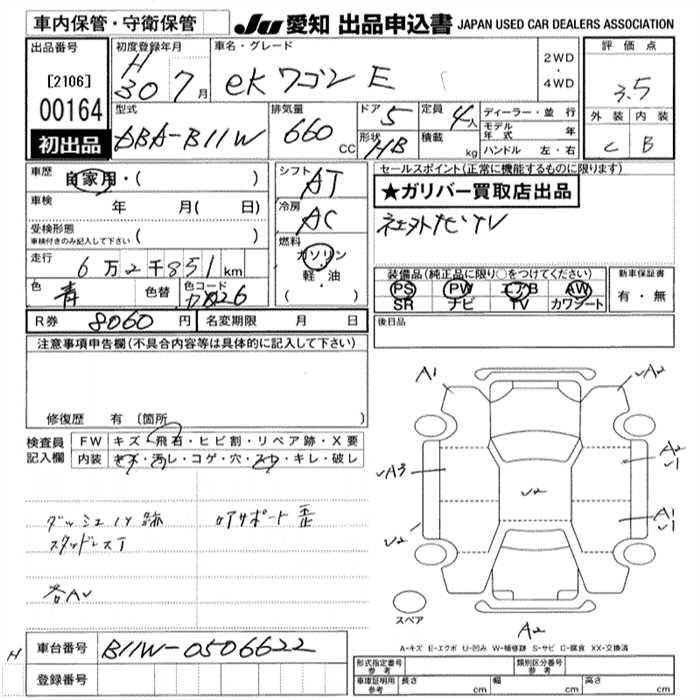 車内保管・守衛保管
JU 愛知 出品申込書 JAPAN USED CAR DEALERS ASSOCIATION
出品番号
[2106]
00164
初出品
初度登録年月
H 30 7月
車名・グレード
eKワゴン E
2WD
・
4WD
評価点
3.5
外装 内装
C B
型式
DBA-B11W
排気量
660 CC
ドア 5
形状 HB
定員 4人
積載 kg
ディーラー・並行
モデル年式 年
ハンドル 左・右
車歴 自家用・( )
車検 年 月( 日)
受検形態
車検付きのみ記入して下さい ( )
走行 6万2千851km
色 青 色替 色コード
R券 8060円 名変期限 月 日
シフト AT
冷房 AC
燃料
ガソリン
・
軽・油
( )
セールスポイント(正常に機能するものに限ります)
★ガリバー買取店出品
社外ナビTV
装備品(純正品に限り○をつけてください)
PS PW エアB AW
SR ナビ TV カワシート
新車保証書
有・無
後日品
注意事項申告欄(不具合内容等は具体的に記入して下さい)
修復歴 有 (箇所
検査員記入欄
FW キズ・飛石・ヒビ割・リペア跡・X要
内装 キズ・汚レ・コゲ・穴・スレ・キレ・破レ
ダッシュ 跡 コアサポート 歪
スタッドレス
各AU
A1
UA2
UA3
A2
U1
U2
A1
U1
U2
A2
スペア
A-キズ E-エクボ U-凹み W-補修跡 S-サビ C-腐食 XX-交換済
H
車台番号 B11W-0506622
登録番号
形式指定番号 参考
類別区分番号 参考
車庫証明用 参考
長さ cm
幅 cm
高さ cm